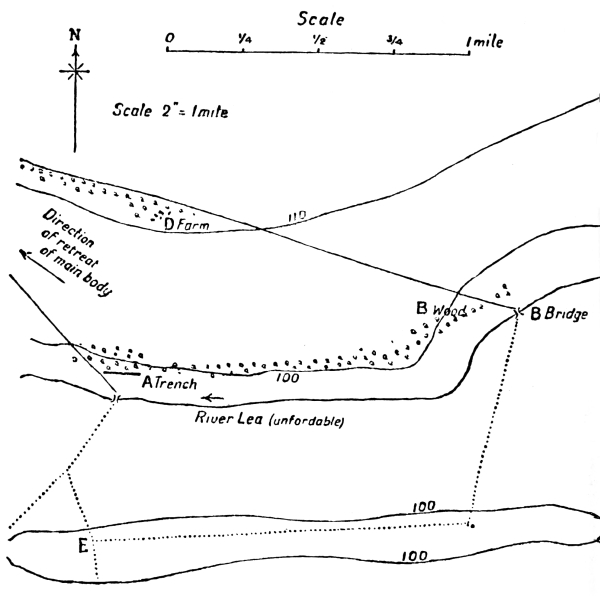 Scale
N
0 1/4 1/2 3/4 1 mile
Scale 2" = 1 mile
110
D Farm
Direction
of retreat
of main body
B Wood
B Bridge
A Trench
100
River Lea (unfordable)
100
E
100